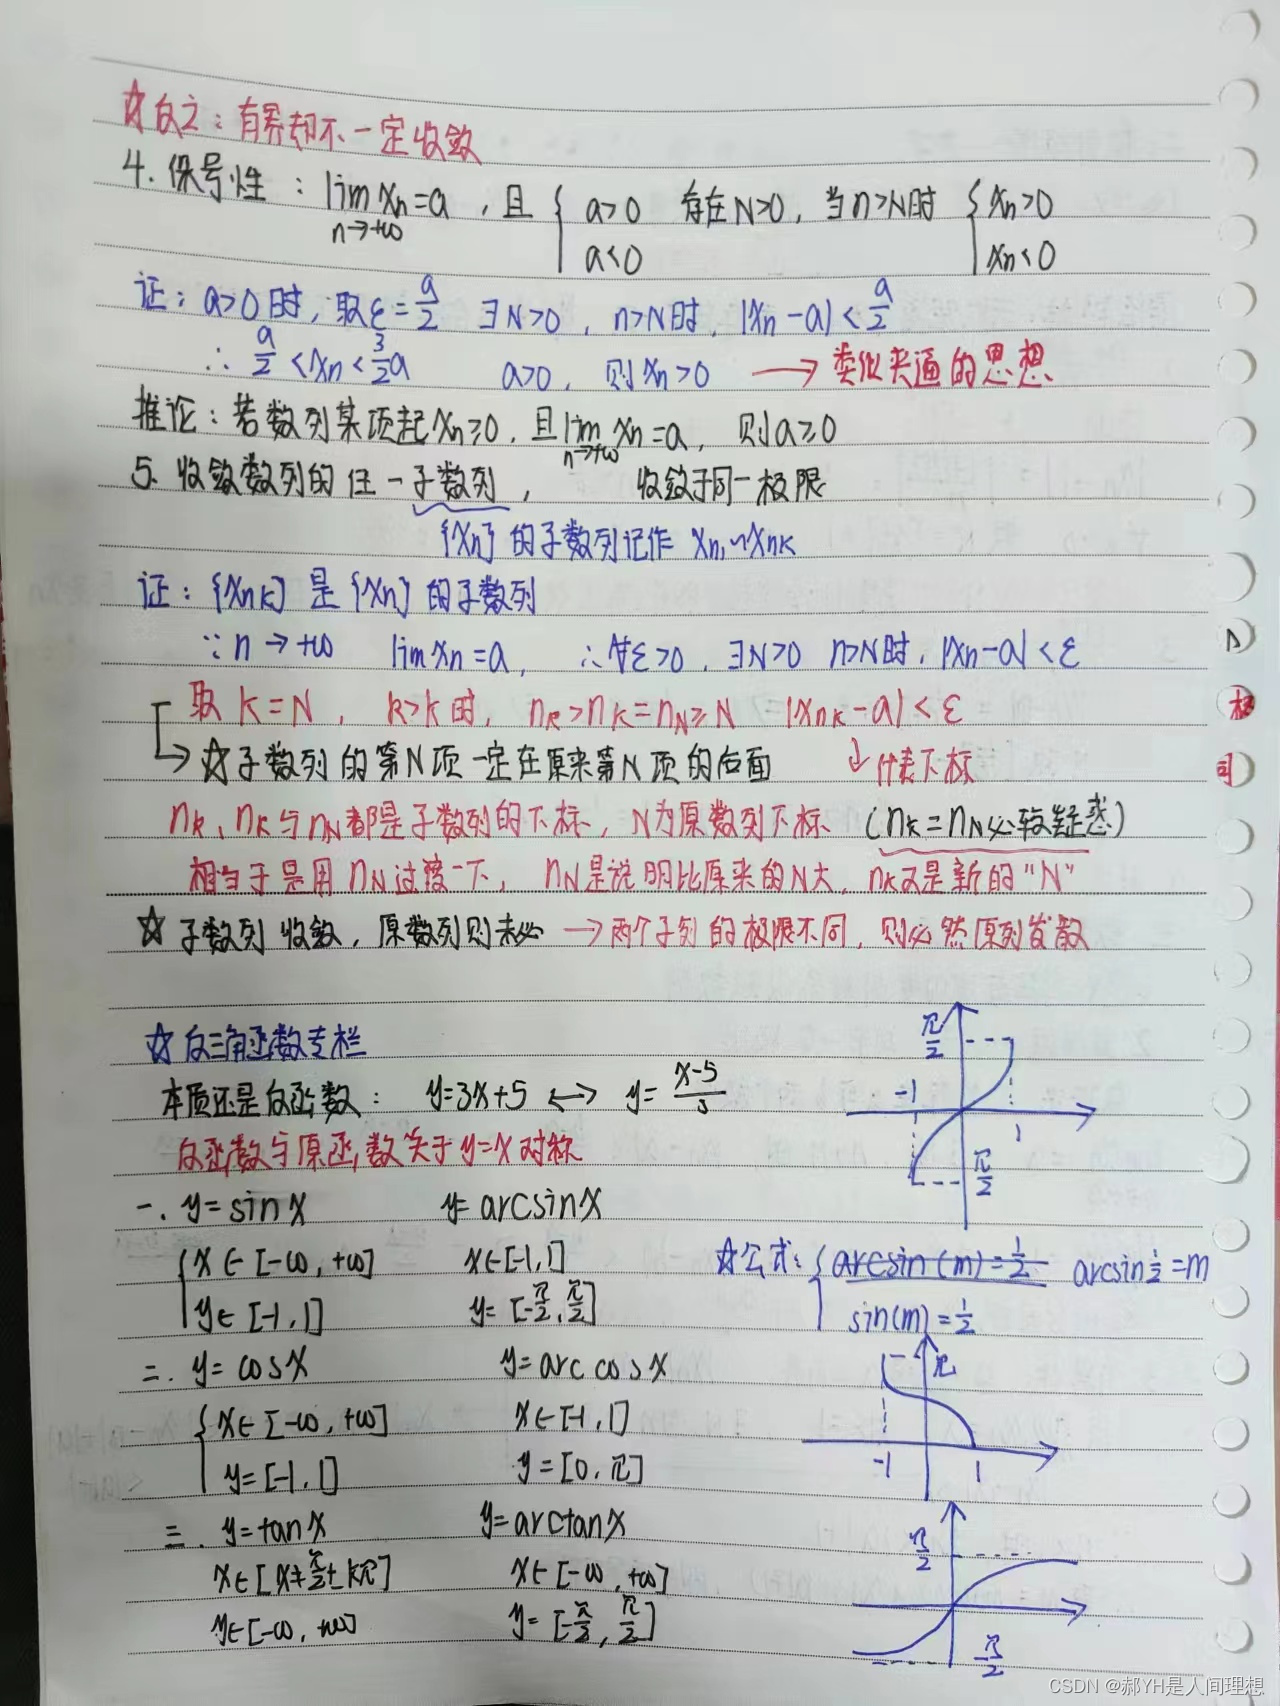 ☆反之：有界却不一定收敛
4. 保号性：lim xn=a，且 { a>0 存在N>0，当n>N时 { xn>0
n→+∞ a<0 xn<0
证：a>0时，取ε=a/2 ∃N>0，n>N时，|xn-a|<a/2
∴ a/2<xn<3/2a a>0，则xn>0 → 类似夹逼的思想
推论：若数列某项起xn≥0，且lim xn=a，则a≥0
n→+∞
5. 收敛数列的任一子数列， 收敛于同一极限
{xn}的子数列记作 xn1~xnk
证：{xnk}是{xn}的子数列
∵n→+∞ lim xn=a， ∴∀ε>0，∃N>0 n>N时，|xn-a|<ε
取K=N， k>K时，nk>nK=nN≥N |xnk-a|<ε
→☆子数列的第N项一定在原来第N项的后面 ↓代表下标
nk、nK与nN都是子数列的下标，N为原数列下标 (nK=nN必较疑惑)
相当于是用nN过渡一下， nN是说明比原来的N大，nK又是新的"N"
☆子数列收敛，原数列则未必 →两个子列的极限不同，则必然原列发散
π/2
☆反三角函数专栏
本质还是反函数： y=3x+5 ↔ y=(x-5)/3
-1 1
反函数与原函数关于y=x对称
π/2
一. y=sinx y=arcsinx
{ x∈[-∞,+∞] x∈[-1,1] ☆公式：{ arcsin(m)=1/2 arcsin1/2=m
y∈[-1,1] y=[-π/2,π/2] sin(m)=1/2
二. y=cosx y=arccosx π
{ x∈[-∞,+∞] x∈[-1,1]
y=[-1,1] y=[0,π] -1 1
三. y=tanx y=arctanx
π/2
x∈[x≠π/2±kπ] x∈[-∞,+∞]
y∈[-∞,+∞] y=[-π/2,π/2]
-π/2
CSDN @郝YH是人间理想